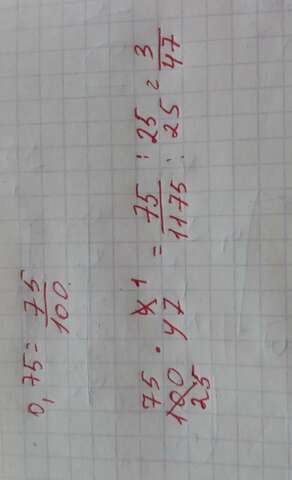 0,75 = 75/100
75/100 25 · 4/47 1 = 75/1175 : 25/25 = 3/47